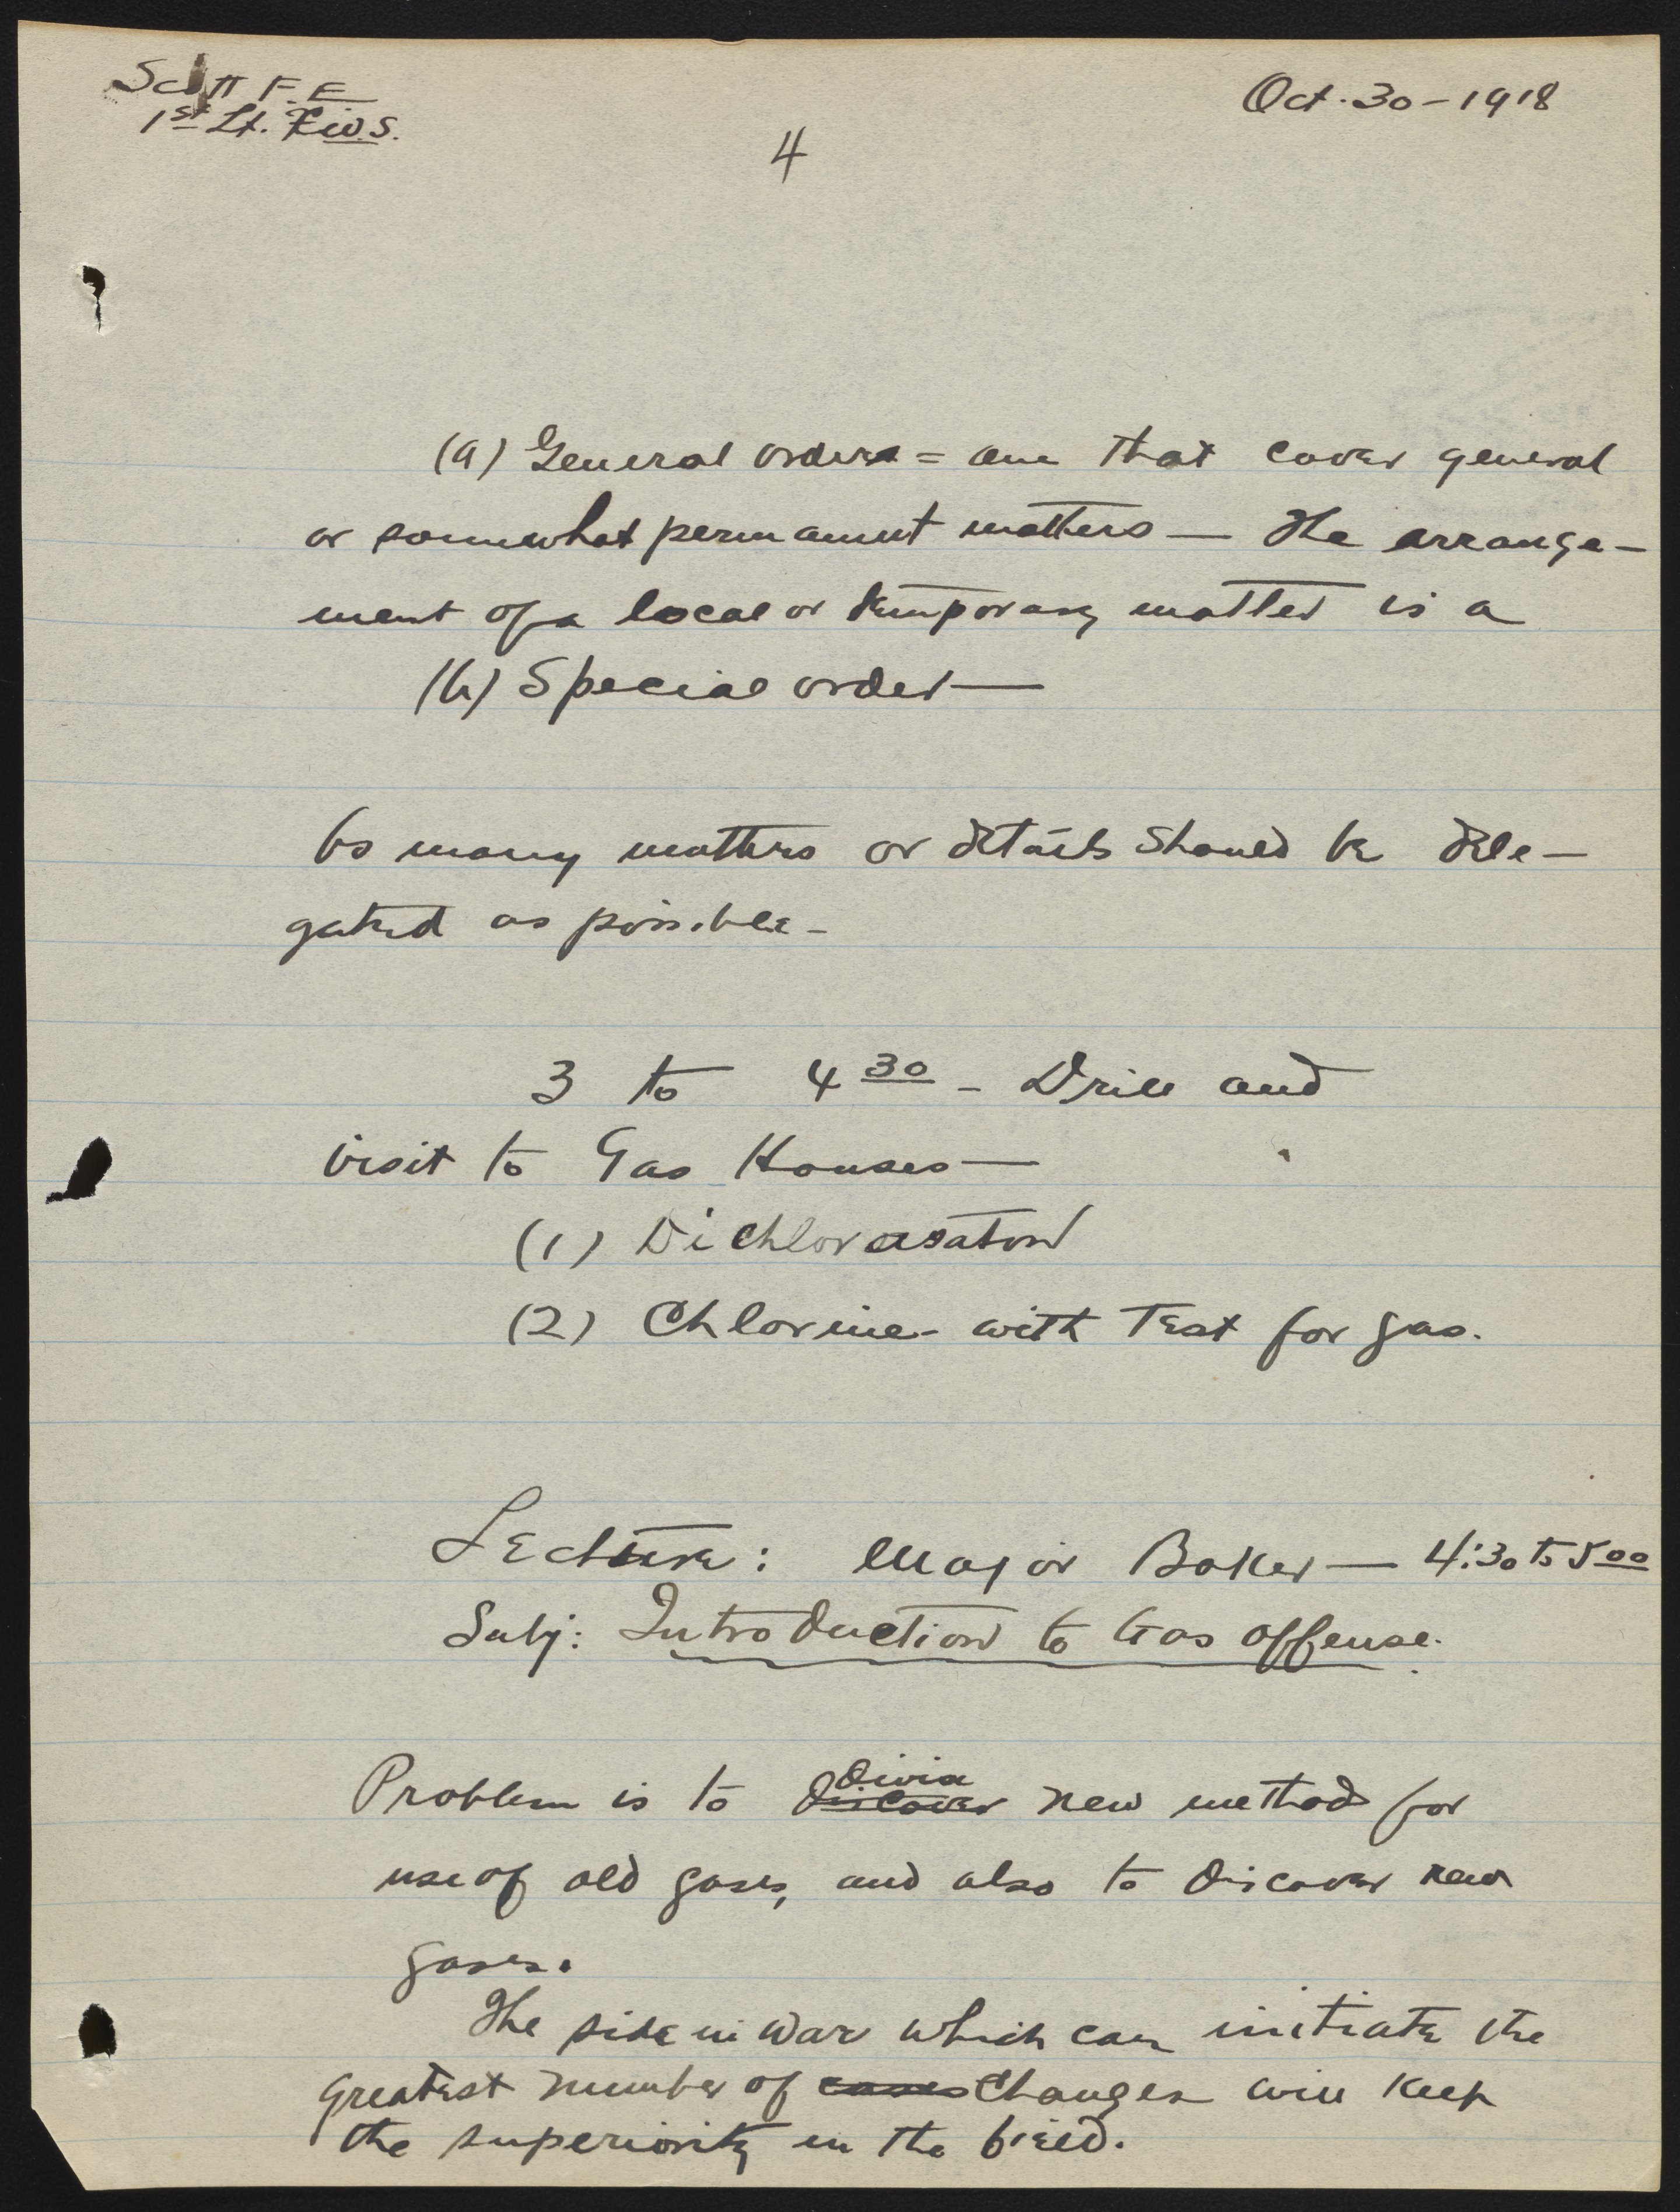 Scott F. E
Oct. 30 - 1918
1st Lt. C.W.S.
4
(a) General orders = one that cover general
or somewhat permanent matters — The arrange-
ment of a local or temporary matter is a
(b) Special order —
As many matters or details should be dele-
gated as possible -
3 to 4 30 - Drill and
visit to Gas Houses —
(1) Dichlor
(2) Chlorine - with Test for gas.
Lecture: Major Baker — 4:30 to 5 00
Subj: Introduction to Gas Offense.
Problem is to discover devise new method for
use of old gases, and also to discover new
gases.
The side in war which can initiate the
greatest number of changes will keep
the superiority in the field.